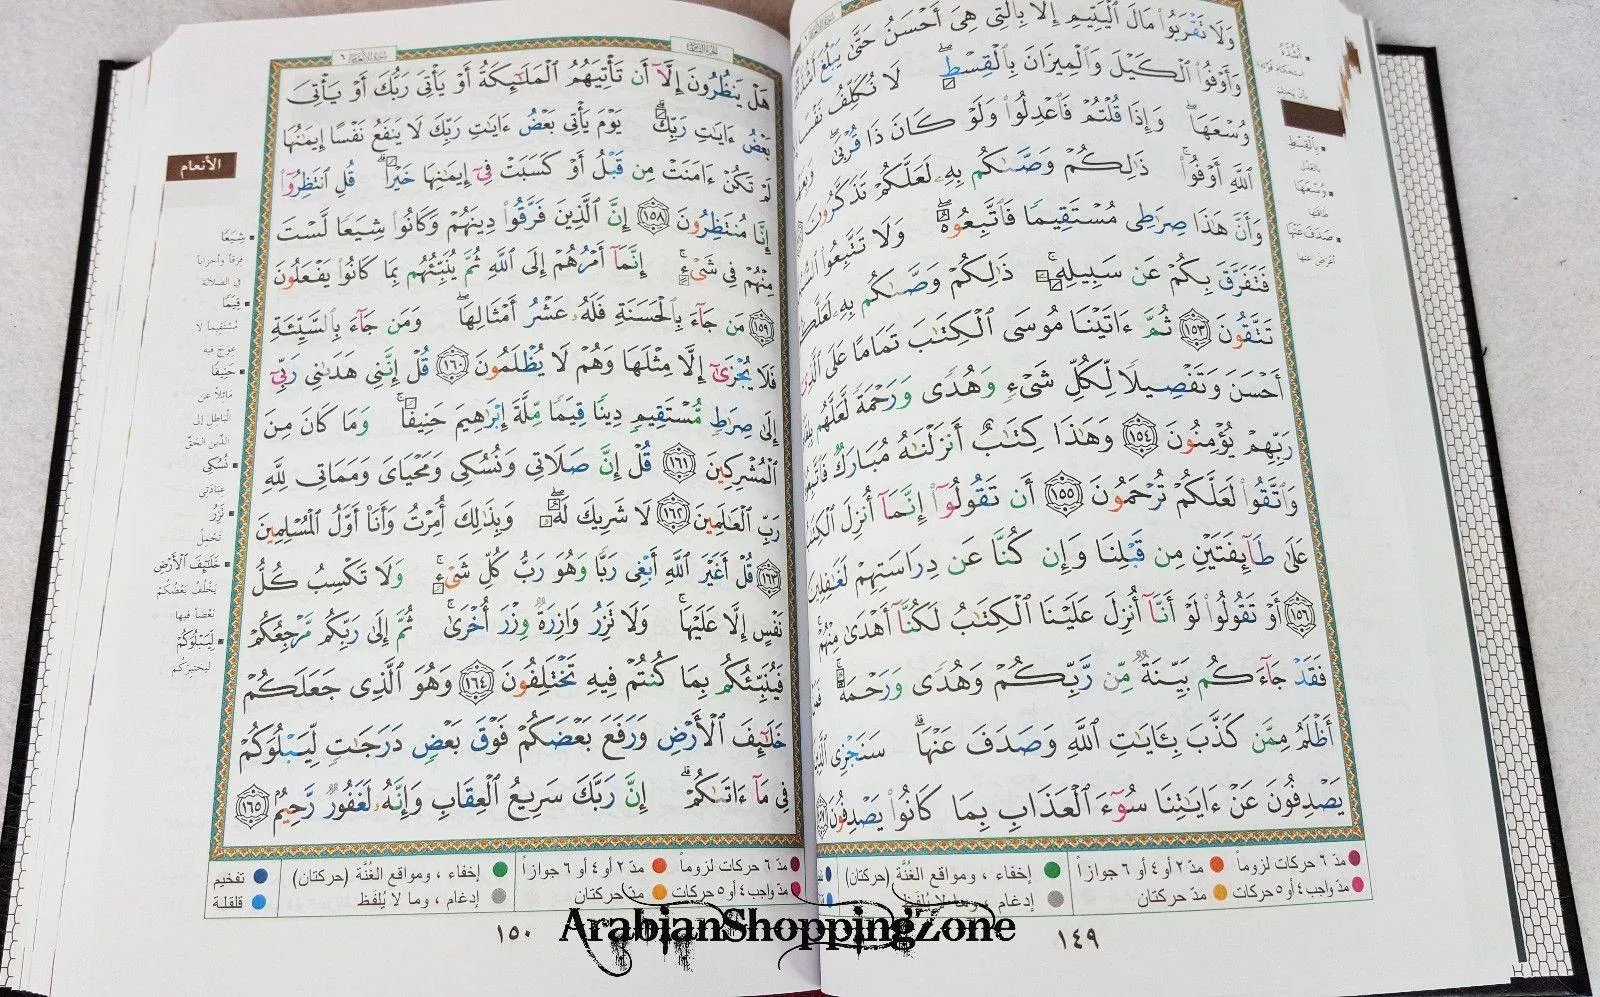 وَلَا تَقْرَبُوا۟ مَالَ ٱلْيَتِيمِ إِلَّا بِٱلَّتِى هِىَ أَحْسَنُ حَتَّىٰ يَبْلُغَ
وَأَوْفُوا۟ ٱلْكَيْلَ وَٱلْمِيزَانَ بِٱلْقِسْطِ لَا نُكَلِّفُ نَفْسًا
وُسْعَهَا وَإِذَا قُلْتُمْ فَٱعْدِلُوا۟ وَلَوْ كَانَ ذَا قُرْبَىٰ
ٱللَّهِ أَوْفُوا۟ ذَٰلِكُمْ وَصَّىٰكُم بِهِۦ لَعَلَّكُمْ تَذَكَّرُونَ
وَأَنَّ هَٰذَا صِرَٰطِى مُسْتَقِيمًا فَٱتَّبِعُوهُ وَلَا تَتَّبِعُوا۟
فَتَفَرَّقَ بِكُمْ عَن سَبِيلِهِۦ ذَٰلِكُمْ وَصَّىٰكُم بِهِۦ
تَتَّقُونَ ١٥٣ ثُمَّ ءَاتَيْنَا مُوسَى ٱلْكِتَٰبَ تَمَامًا عَلَى
أَحْسَنَ وَتَفْصِيلًا لِّكُلِّ شَىْءٍ وَهُدًى وَرَحْمَةً لَّعَلَّهُم
رَبِّهِمْ يُؤْمِنُونَ ١٥٤ وَهَٰذَا كِتَٰبٌ أَنزَلْنَٰهُ مُبَارَكٌ
وَٱتَّقُوا۟ لَعَلَّكُمْ تُرْحَمُونَ ١٥٥ أَن تَقُولُوٓا۟ إِنَّمَآ أُنزِلَ
عَلَىٰ طَآئِفَتَيْنِ مِن قَبْلِنَا وَإِن كُنَّا عَن دِرَاسَتِهِمْ لَغَٰفِلِينَ
١٥٦ أَوْ تَقُولُوا۟ لَوْ أَنَّآ أُنزِلَ عَلَيْنَا ٱلْكِتَٰبُ لَكُنَّآ أَهْدَىٰ مِنْهُمْ
فَقَدْ جَآءَكُم بَيِّنَةٌ مِّن رَّبِّكُمْ وَهُدًى وَرَحْمَةٌ
أَظْلَمُ مِمَّن كَذَّبَ بِـَٔايَٰتِ ٱللَّهِ وَصَدَفَ عَنْهَا سَنَجْزِى
يَصْدِفُونَ عَنْ ءَايَٰتِنَا سُوٓءَ ٱلْعَذَابِ بِمَا كَانُوا۟ يَصْدِفُونَ
بِٱلْقِسْطِ
بالعدل
وُسْعَهَا
طاقتها
صَدَفَ عَنْهَا
أعرض عنها
مدّ ٦ حركات لزوماً مدّ ٢ أو ٤ أو ٦ جوازاً إخفاء ، ومواقع الغُنَّة (حركتان)
مدّ واجب ٤ أو ٥ حركات مدّ حركتان إدغام ، وما لا يُلفَظ
١٤٩
هَلْ يَنظُرُونَ إِلَّآ أَن تَأْتِيَهُمُ ٱلْمَلَٰٓئِكَةُ أَوْ يَأْتِىَ رَبُّكَ أَوْ يَأْتِىَ
بَعْضُ ءَايَٰتِ رَبِّكَ يَوْمَ يَأْتِى بَعْضُ ءَايَٰتِ رَبِّكَ لَا يَنفَعُ نَفْسًا إِيمَٰنُهَا
لَمْ تَكُنْ ءَامَنَتْ مِن قَبْلُ أَوْ كَسَبَتْ فِىٓ إِيمَٰنِهَا خَيْرًا قُلِ ٱنتَظِرُوٓا۟
إِنَّا مُنتَظِرُونَ ١٥٨ إِنَّ ٱلَّذِينَ فَرَّقُوا۟ دِينَهُمْ وَكَانُوا۟ شِيَعًا لَّسْتَ
مِنْهُمْ فِى شَىْءٍ إِنَّمَآ أَمْرُهُمْ إِلَى ٱللَّهِ ثُمَّ يُنَبِّئُهُم بِمَا كَانُوا۟ يَفْعَلُونَ
١٥٩ مَن جَآءَ بِٱلْحَسَنَةِ فَلَهُۥ عَشْرُ أَمْثَالِهَا وَمَن جَآءَ بِٱلسَّيِّئَةِ
فَلَا يُجْزَىٰٓ إِلَّا مِثْلَهَا وَهُمْ لَا يُظْلَمُونَ ١٦٠ قُلْ إِنَّنِى هَدَىٰنِى رَبِّىٓ
إِلَىٰ صِرَٰطٍ مُّسْتَقِيمٍ دِينًا قِيَمًا مِّلَّةَ إِبْرَٰهِيمَ حَنِيفًا وَمَا كَانَ مِنَ
ٱلْمُشْرِكِينَ ١٦١ قُلْ إِنَّ صَلَاتِى وَنُسُكِى وَمَحْيَاىَ وَمَمَاتِى لِلَّهِ
رَبِّ ٱلْعَٰلَمِينَ ١٦٢ لَا شَرِيكَ لَهُۥ وَبِذَٰلِكَ أُمِرْتُ وَأَنَا۠ أَوَّلُ ٱلْمُسْلِمِينَ
١٦٣ قُلْ أَغَيْرَ ٱللَّهِ أَبْغِى رَبًّا وَهُوَ رَبُّ كُلِّ شَىْءٍ وَلَا تَكْسِبُ كُلُّ
نَفْسٍ إِلَّا عَلَيْهَا وَلَا تَزِرُ وَازِرَةٌ وِزْرَ أُخْرَىٰ ثُمَّ إِلَىٰ رَبِّكُم مَّرْجِعُكُمْ
فَيُنَبِّئُكُم بِمَا كُنتُمْ فِيهِ تَخْتَلِفُونَ ١٦٤ وَهُوَ ٱلَّذِى جَعَلَكُمْ
خَلَٰٓئِفَ ٱلْأَرْضِ وَرَفَعَ بَعْضَكُمْ فَوْقَ بَعْضٍ دَرَجَٰتٍ لِّيَبْلُوَكُمْ
فِى مَآ ءَاتَىٰكُمْ إِنَّ رَبَّكَ سَرِيعُ ٱلْعِقَابِ وَإِنَّهُۥ لَغَفُورٌ رَّحِيمٌ ١٦٥
الأنعام
شِيَعًا
فرقاً وأحزاباً
في الضلالة
قِيَمًا
مستقيماً لا
عوج فيه
حَنِيفًا
مائلاً عن
الباطل إلى
الدين الحقّ
نُسُكِى
عبادتي
تَزِرُ
تحمل
خَلَٰٓئِفَ ٱلْأَرْضِ
يخلف بعضكم
بعضاً فيها
لِّيَبْلُوَكُمْ
ليختبركم
مدّ ٦ حركات لزوماً مدّ ٢ أو ٤ أو ٦ جوازاً إخفاء ، ومواقع الغُنَّة (حركتان) تفخيم
مدّ واجب ٤ أو ٥ حركات مدّ حركتان إدغام ، وما لا يُلفَظ قلقلة
١٥٠
ArabianShoppingZone